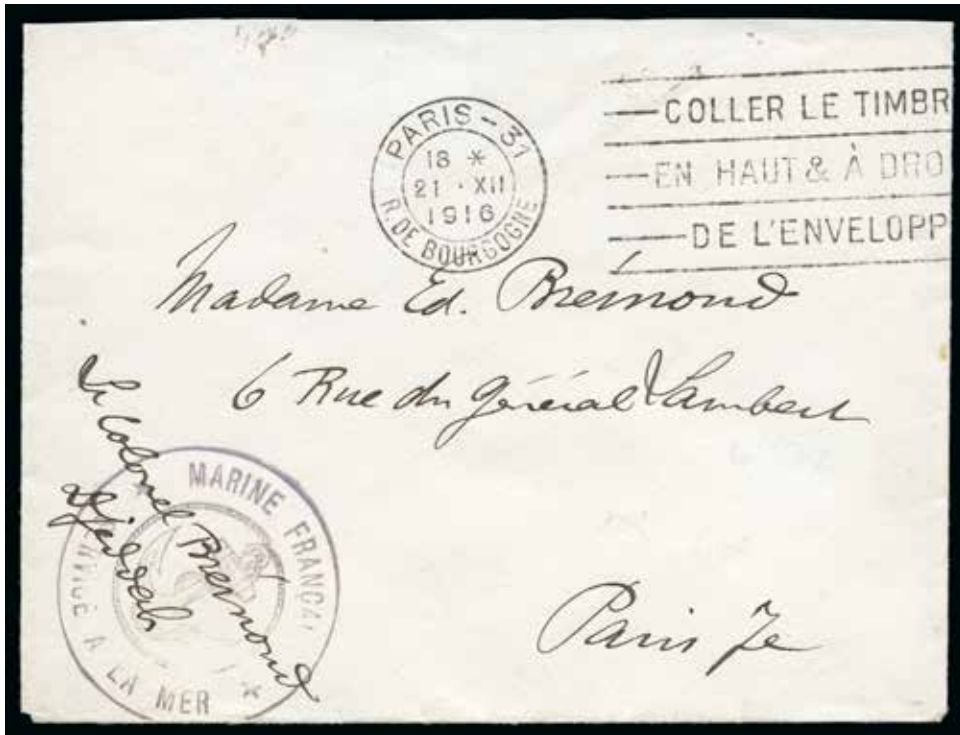 PARIS - 31
18 *
21 · XII
1916
R. DE BOURGOGNE
COLLER LE TIMBR
EN HAUT & À DRO
DE L'ENVELOPP
Madame Ed. Brémond
6 Rue du Général Lambert
Paris 7e
Le Colonel Brémond
Djeddah
MARINE FRANÇAI
À LA MER